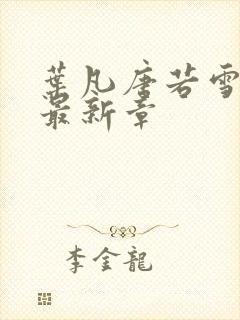 葉凡唐若雪
最新章
李金龍